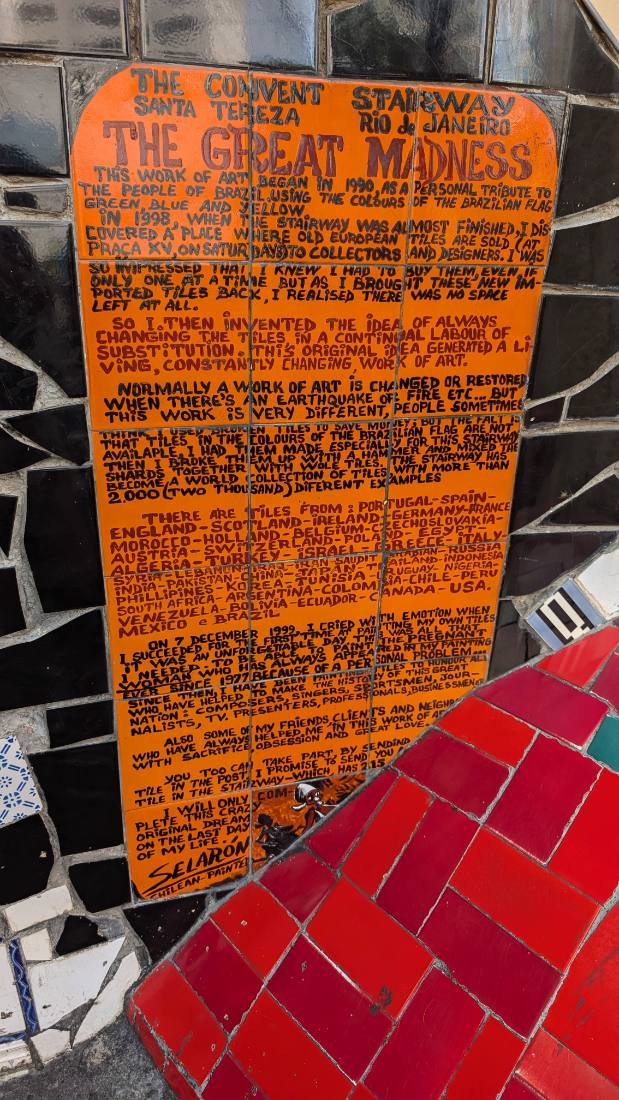 THE CONVENT STAIRWAY
SANTA TEREZA RIO de JANEIRO
THE GREAT MADNESS
THIS WORK OF ART BEGAN IN 1990, AS A PERSONAL TRIBUTE TO
THE PEOPLE OF BRAZIL, USING THE COLOURS OF THE BRAZILIAN FLAG
GREEN, BLUE AND YELLOW.
IN 1998, WHEN THE STAIRWAY WAS ALMOST FINISHED, I DIS
COVERED A PLACE WHERE OLD EUROPEAN TILES ARE SOLD (AT
PRAÇA XV, ON SATURDAYS) TO COLLECTORS AND DESIGNERS. I WAS
SO IMPRESSED THAT I KNEW I HAD TO BUY THEM, EVEN IF
ONLY ONE AT A TIME BUT AS I BROUGHT THESE NEW IM-
PORTED TILES BACK, I REALISED THERE WAS NO SPACE
LEFT AT ALL.
SO I THEN INVENTED THE IDEA OF ALWAYS
CHANGING THE TILES IN A CONTINUAL LABOUR OF
SUBSTITUTION. THIS ORIGINAL IDEA GENERATED A LI-
VING, CONSTANTLY CHANGING, WORK OF ART.
NORMALLY A WORK OF ART IS CHANGED OR RESTORED
WHEN THERE'S AN EARTHQUAKE OF FIRE ETC... BUT
THIS WORK IS VERY DIFFERENT, PEOPLE SOMETIMES
THINK I USED BROKEN TILES TO SAVE MONEY, BUT THE FACT IS
THAT TILES IN THE COLOURS OF THE BRAZILIAN FLAG ARE NOT
AVAILABLE, I HAD THEM MADE ESPECIALLY FOR THIS STAIRWAY
THEN I BROKE THEM UP WITH A HAMMER AND MIXED THE
SHARDS TOGETHER WITH WOLE TILES. THE STAIRWAY HAS
BECOME A WORLD COLLECTION OF TILES WITH MORE THAN
2.000 (TWO THOUSAND) DIFFERENT EXAMPLES
THERE ARE TILES FROM: PORTUGAL-SPAIN-
ENGLAND-SCOTLAND-IRELAND-GERMANY-FRANCE
MOROCCO-HOLLAND-BELGIUM-CZECHOSLOVAKIA-
AUSTRIA-SWITZERLAND-POLAND-EGYPT-
ALGERIA-TURKEY-ISRAEL-GREECE-ITALY
SYRIA-LEBANON-IRAN-SAUDI RUSSIA
INDIA-PAKISTAN-CHINA-JAPAN-THAILAND-INDONESIA
PHILLIPINES-KOREA-TUNISIA-URUGUAY-NIGERIA-
SOUTH AFRICA-ARGENTINA-COLOMBIA-CHILE-PERU
VENEZUELA-BOLIVIA-ECUADOR-CANADA-USA.
MEXICO e BRAZIL
ON 7 DECEMBER 1999, I CRIED WITH EMOTION WHEN
I SUCCEEDED FOR THE FIRST TIME AT PAINTING MY OWN TILES
IT WAS AN UNFORGETABLE DAY IT WAS ALL THAT
I NEEDED, TO BE ABLE TO PAINT THE PREGNANT
WOMAN WHO HAS ALWAYS APPEARED IN MY PAINTING
EVER SINCE 1977, BECAUSE OF A PERSONAL PROBLEM...
SINCE THEN I HAVE BEEN PAINTING TILES TO HONOUR ALL
WHO HAVE HELPED TO MAKE THE HISTORY OF THIS GREAT
NATION: COMPOSERS, SINGERS, SPORTSMEN, JOUR-
NALISTS, TV. PRESENTERS, PROFESSIONALS, BUSINESSMEN
ALSO SOME OF MY FRIENDS, CLIENTS AND NEIGHB
WHO HAVE ALWAYS HELPED ME IN THIS WORK OF AR
WITH SACRIFICE, OBSESSION AND GREAT LOVE.
YOU TOO CAN TAKE PART, BY SENDING
TILE IN THE POST, I PROMISE TO SEND YOU A
TILE IN THE STAIRWAY-WHICH HAS 2
I WILL ONLY COM-
PLETE THIS CRAZY
ORIGINAL DREAM
ON THE LAST DAY
OF MY LIFE -
SELARÓN
CHILEAN-PAINTE